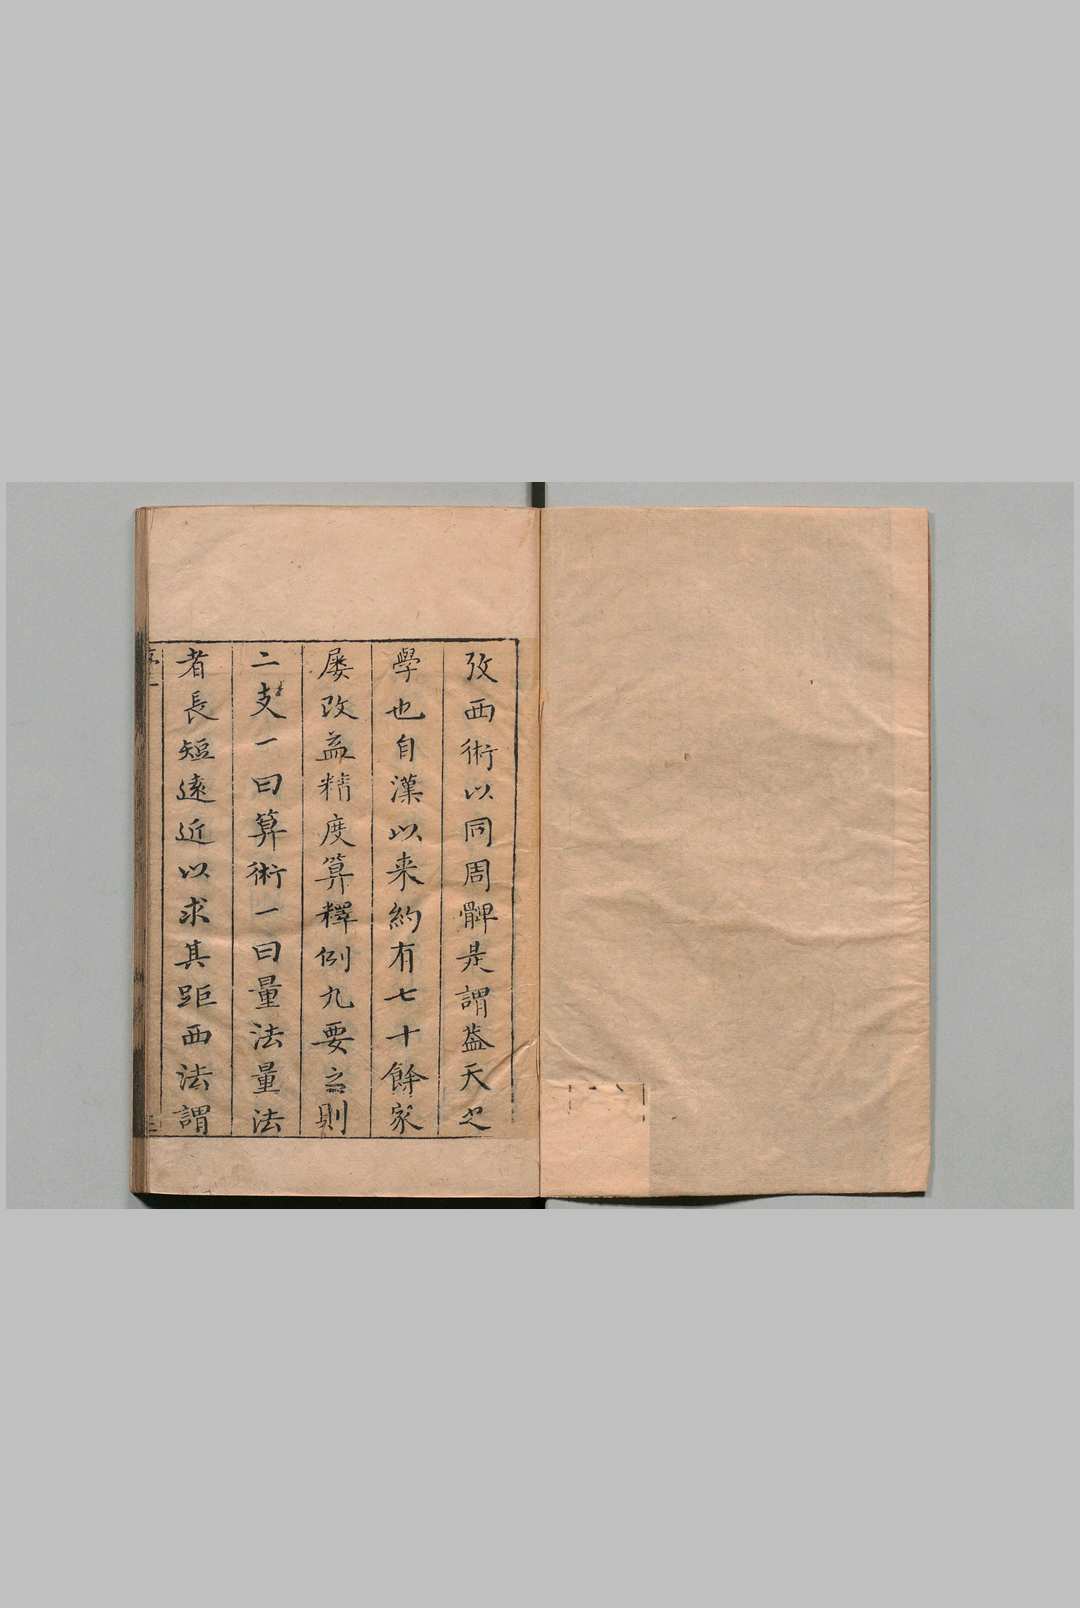 攷西術以同周髀是謂蓋天之
學也自漢以来約有七十餘家
屡改益精度算釋例九要之則
二支一曰算術一曰量法量法
者長短遠近以求其距西法謂